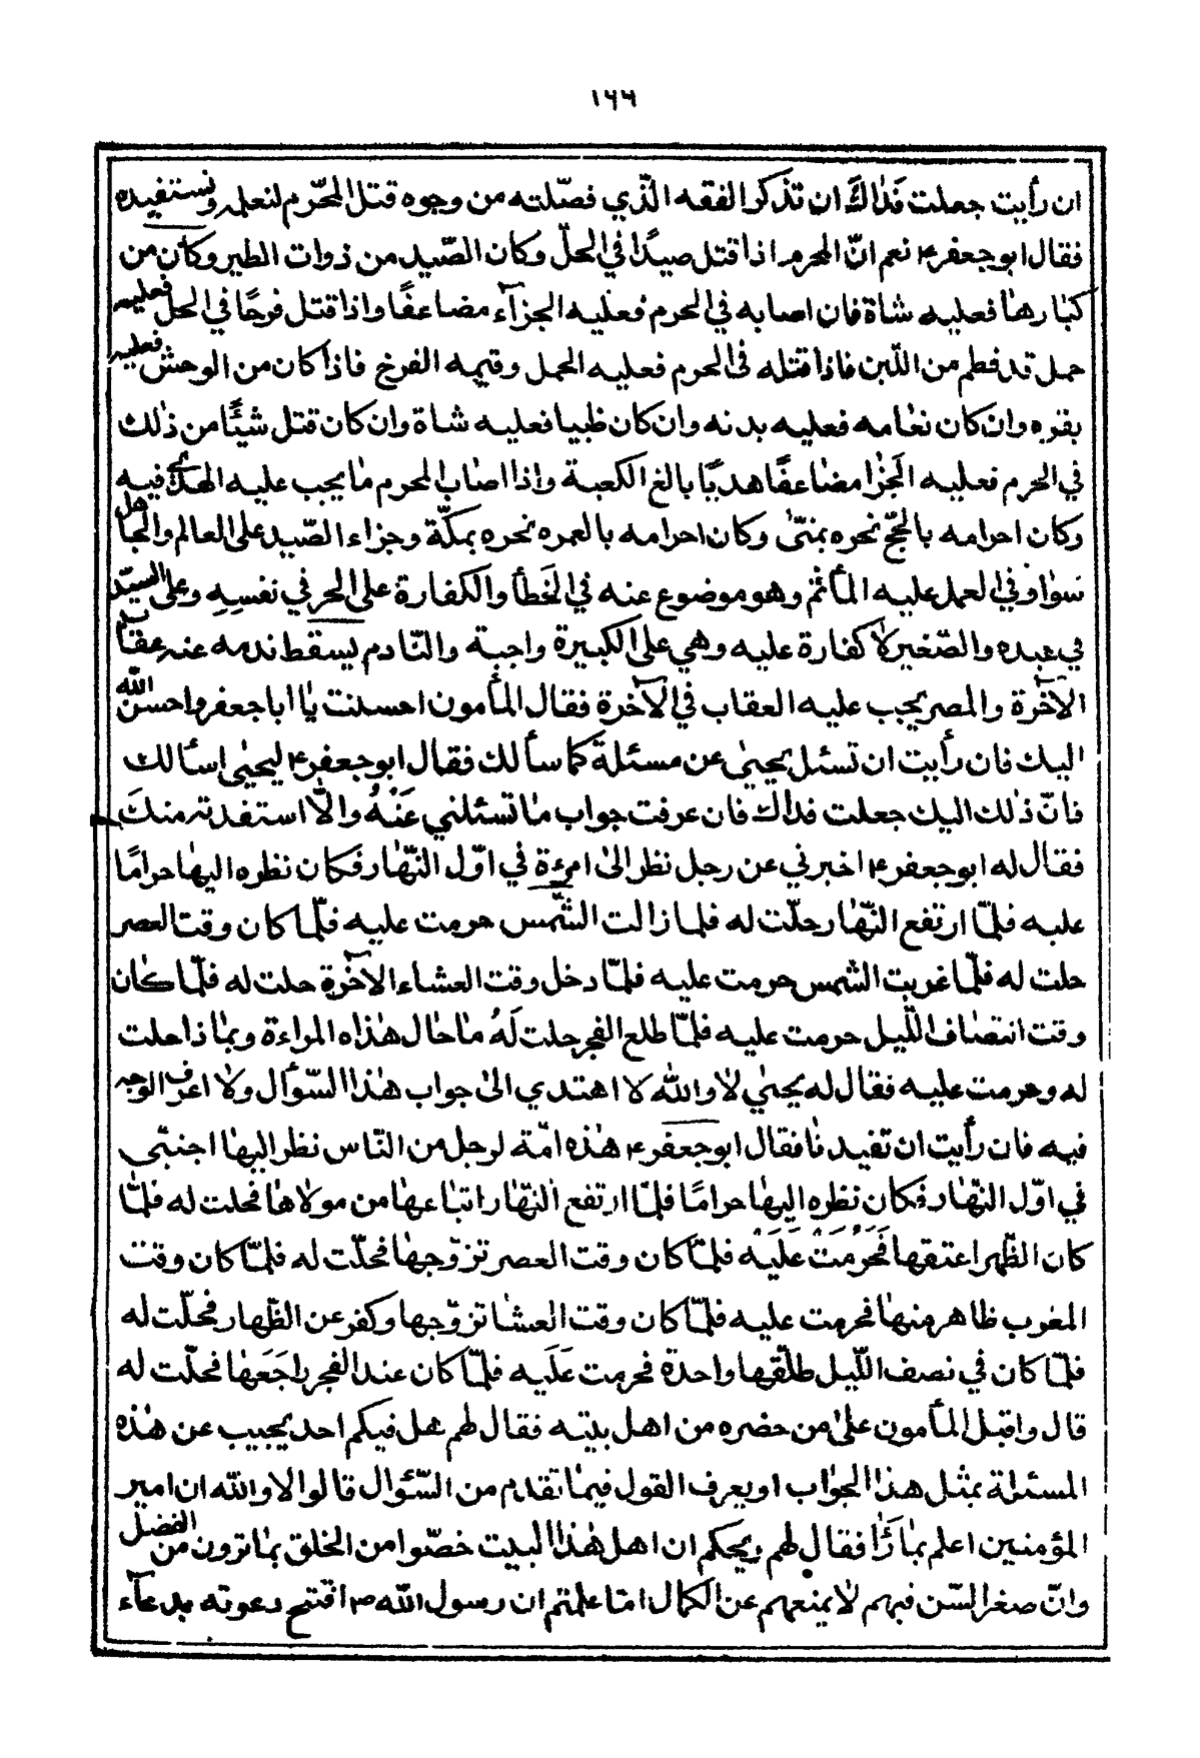 ١٦٦
ان رأيت جعلت فداك ان تذكر الفقه الذّي فصّلته من وجوه قتل المحّرم لنعلمه ونستفيده
فقال ابو جعفر ۴ نعم انّ المحرم اذا قتل صيدًا في الحلّ وكان الصّيد من ذوات الطير وكان من
كبارها فعليه شاة فان اصابه في الحرم فعليه الجزآء مضاعفًا واذا قتل فرخًا في الحل فعليه
حمل قد فطم من اللّبن فاذا قتله في الحرم فعليه الحمل وقيمه الفرخ فاذا كان من الوحش فعليه
بقره وان كان نعامه فعليه بدنه وان كان ظبيا فعليه شاة وان كان قتل شيئًا من ذلك
في الحرم فعليه الجزا مضاعفًا هديًا بالغ الكعبة واذا اصاب المحرم ما يجب عليه الهدي فيه
وكان احرامه بالحجّ نحره بمنىّ وكان احرامه بالعمره نحره بمكّة وجزاء الصّيد على العالم والجاهل
سواو في العمل عليه المأثم وهو موضوع عنه في الخطأ والكفارة على الحر في نفسِهِ وعلى السيّد
في عبده والصّغير لا كفارة عليه وهي على الكبيرة واجبة والنّادم يسقط ندمه عنه عقاب
الآخرة والمصر يجب عليه العقاب في الآخرة فقال المأمون احسنت يا ابا جعفر ۴ احسن الله
اليك فان رأيت ان تسئل يحيى عن مسئلة كما سألك فقال ابو جعفر ۴ ليحيى اسألك
فانّ ذلك اليك جعلت فداك فان عرفت جواب ما تسئلني عَنْهُ والّا استفدته منكَ
فقال له ابو جعفر ۴ اخبرني عن رجل نظر الى امرءة في اوّل النّهار فكان نظره اليها حرامًا
عليه فلمّا ارتفع النّهار حلّت له فلما زالت الشّمس حرمت عليه فلمّا كان وقت العصر
حلت له فلمّا غربت الشّمس حرمت عليه فلمّا دخل وقت العشاء الآخرة حلت له فلمّا كان
وقت انتصاف اللّيل حرمت عليه فلمّا طلع الفجر حلت لَهُ ما حال هذه المراءة وبما ذا حلت
له وحرمت عليه فقال له يحيي لا والله لا اهتدي الى جواب هذا السّؤال ولا اعرف الوجه
فيه فان رأيت ان تفيدنا فقال ابو جعفر ۴ هذه امّة لرجل من النّاس نظر اليها اجنبّي
في اوّل النّهار فكان نظره اليها حرامًا فلمّا ارتفع النّهار اتباعها من مولاها فحلت له فلمّا
كان الظّهر اعتقها فَحَرُمَتْ عَلَيْه فلمّا كان وقت العصر تزوّجها فحلّت له فلمّا كان وقت
المغرب ظاهر منها فحرمت عليه فلمّا كان وقت العشا تزوّجها وكفر عن الظّهار فحلّت له
فلمّا كان في نصف اللّيل طلّقها واحدة فحرمت عَلَيه فلمّا كان عند الفجر راجَعَها فحلّت له
قال واقبل المأمون على من حضره من اهل بيته فقال لهم هل فيكم احد يجيب عن هذه
المسئلة بمثل هذا الجواب او يعرف القول فيما تقدم من السّؤال قالوا لا والله ان امير
المؤمنين اعلم بما رَأا فقال لهم ويحكم ان اهل هذا البيت خصّوا من الخلق بما ترون من الفضل
وانّ صغر السّن فيهم لا يمنعهم عن الكمال امّا علمتم ان رسول الله ص افتتح دعوته بدعآء